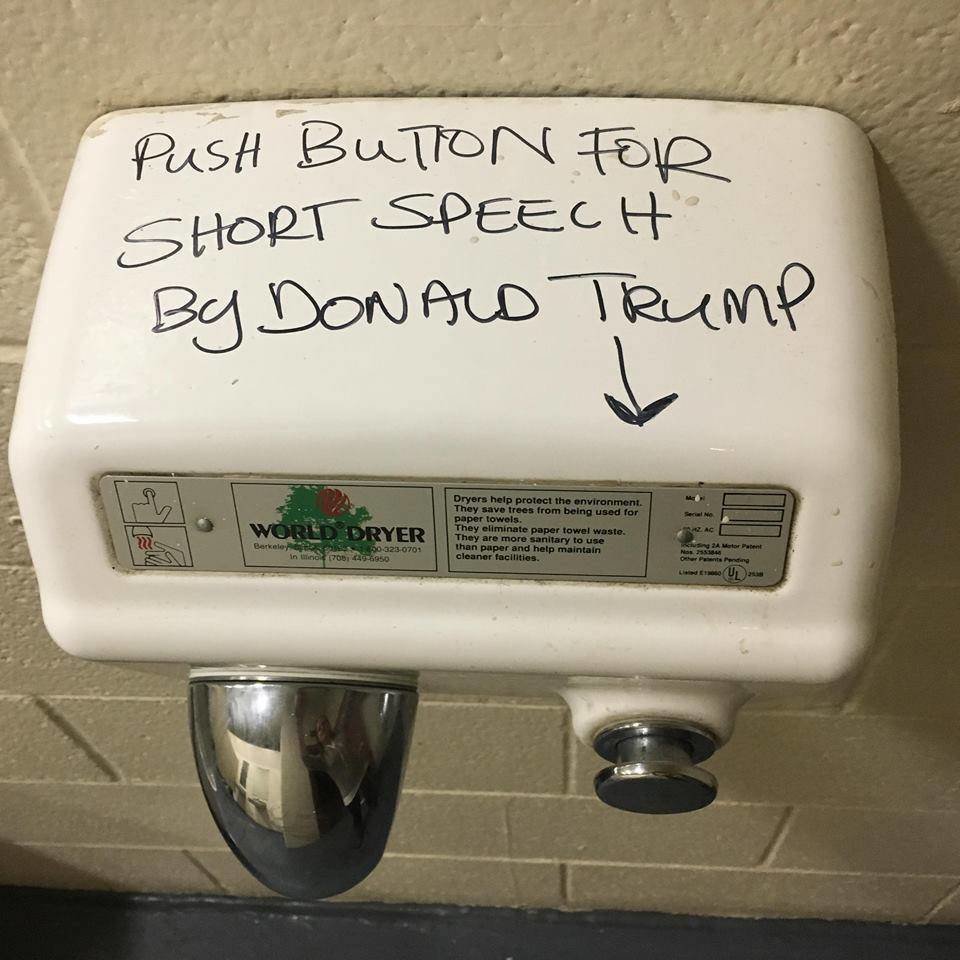 PUSH BUTTON FOR
SHORT SPEECH
By DONALD TRUMP
WORLD® DRYER
Berkeley
-800-323-0701
In Illinois (708) 449-6950
Dryers help protect the environment.
They save trees from being used for
paper towels.
They eliminate paper towel waste.
They are more sanitary to use
than paper and help maintain
cleaner facilities.
Serial No.
HZ. AC
Including 2A Motor Patent
Nos. 2553846
Other Patents Pending
Listed E19860 UL 253B